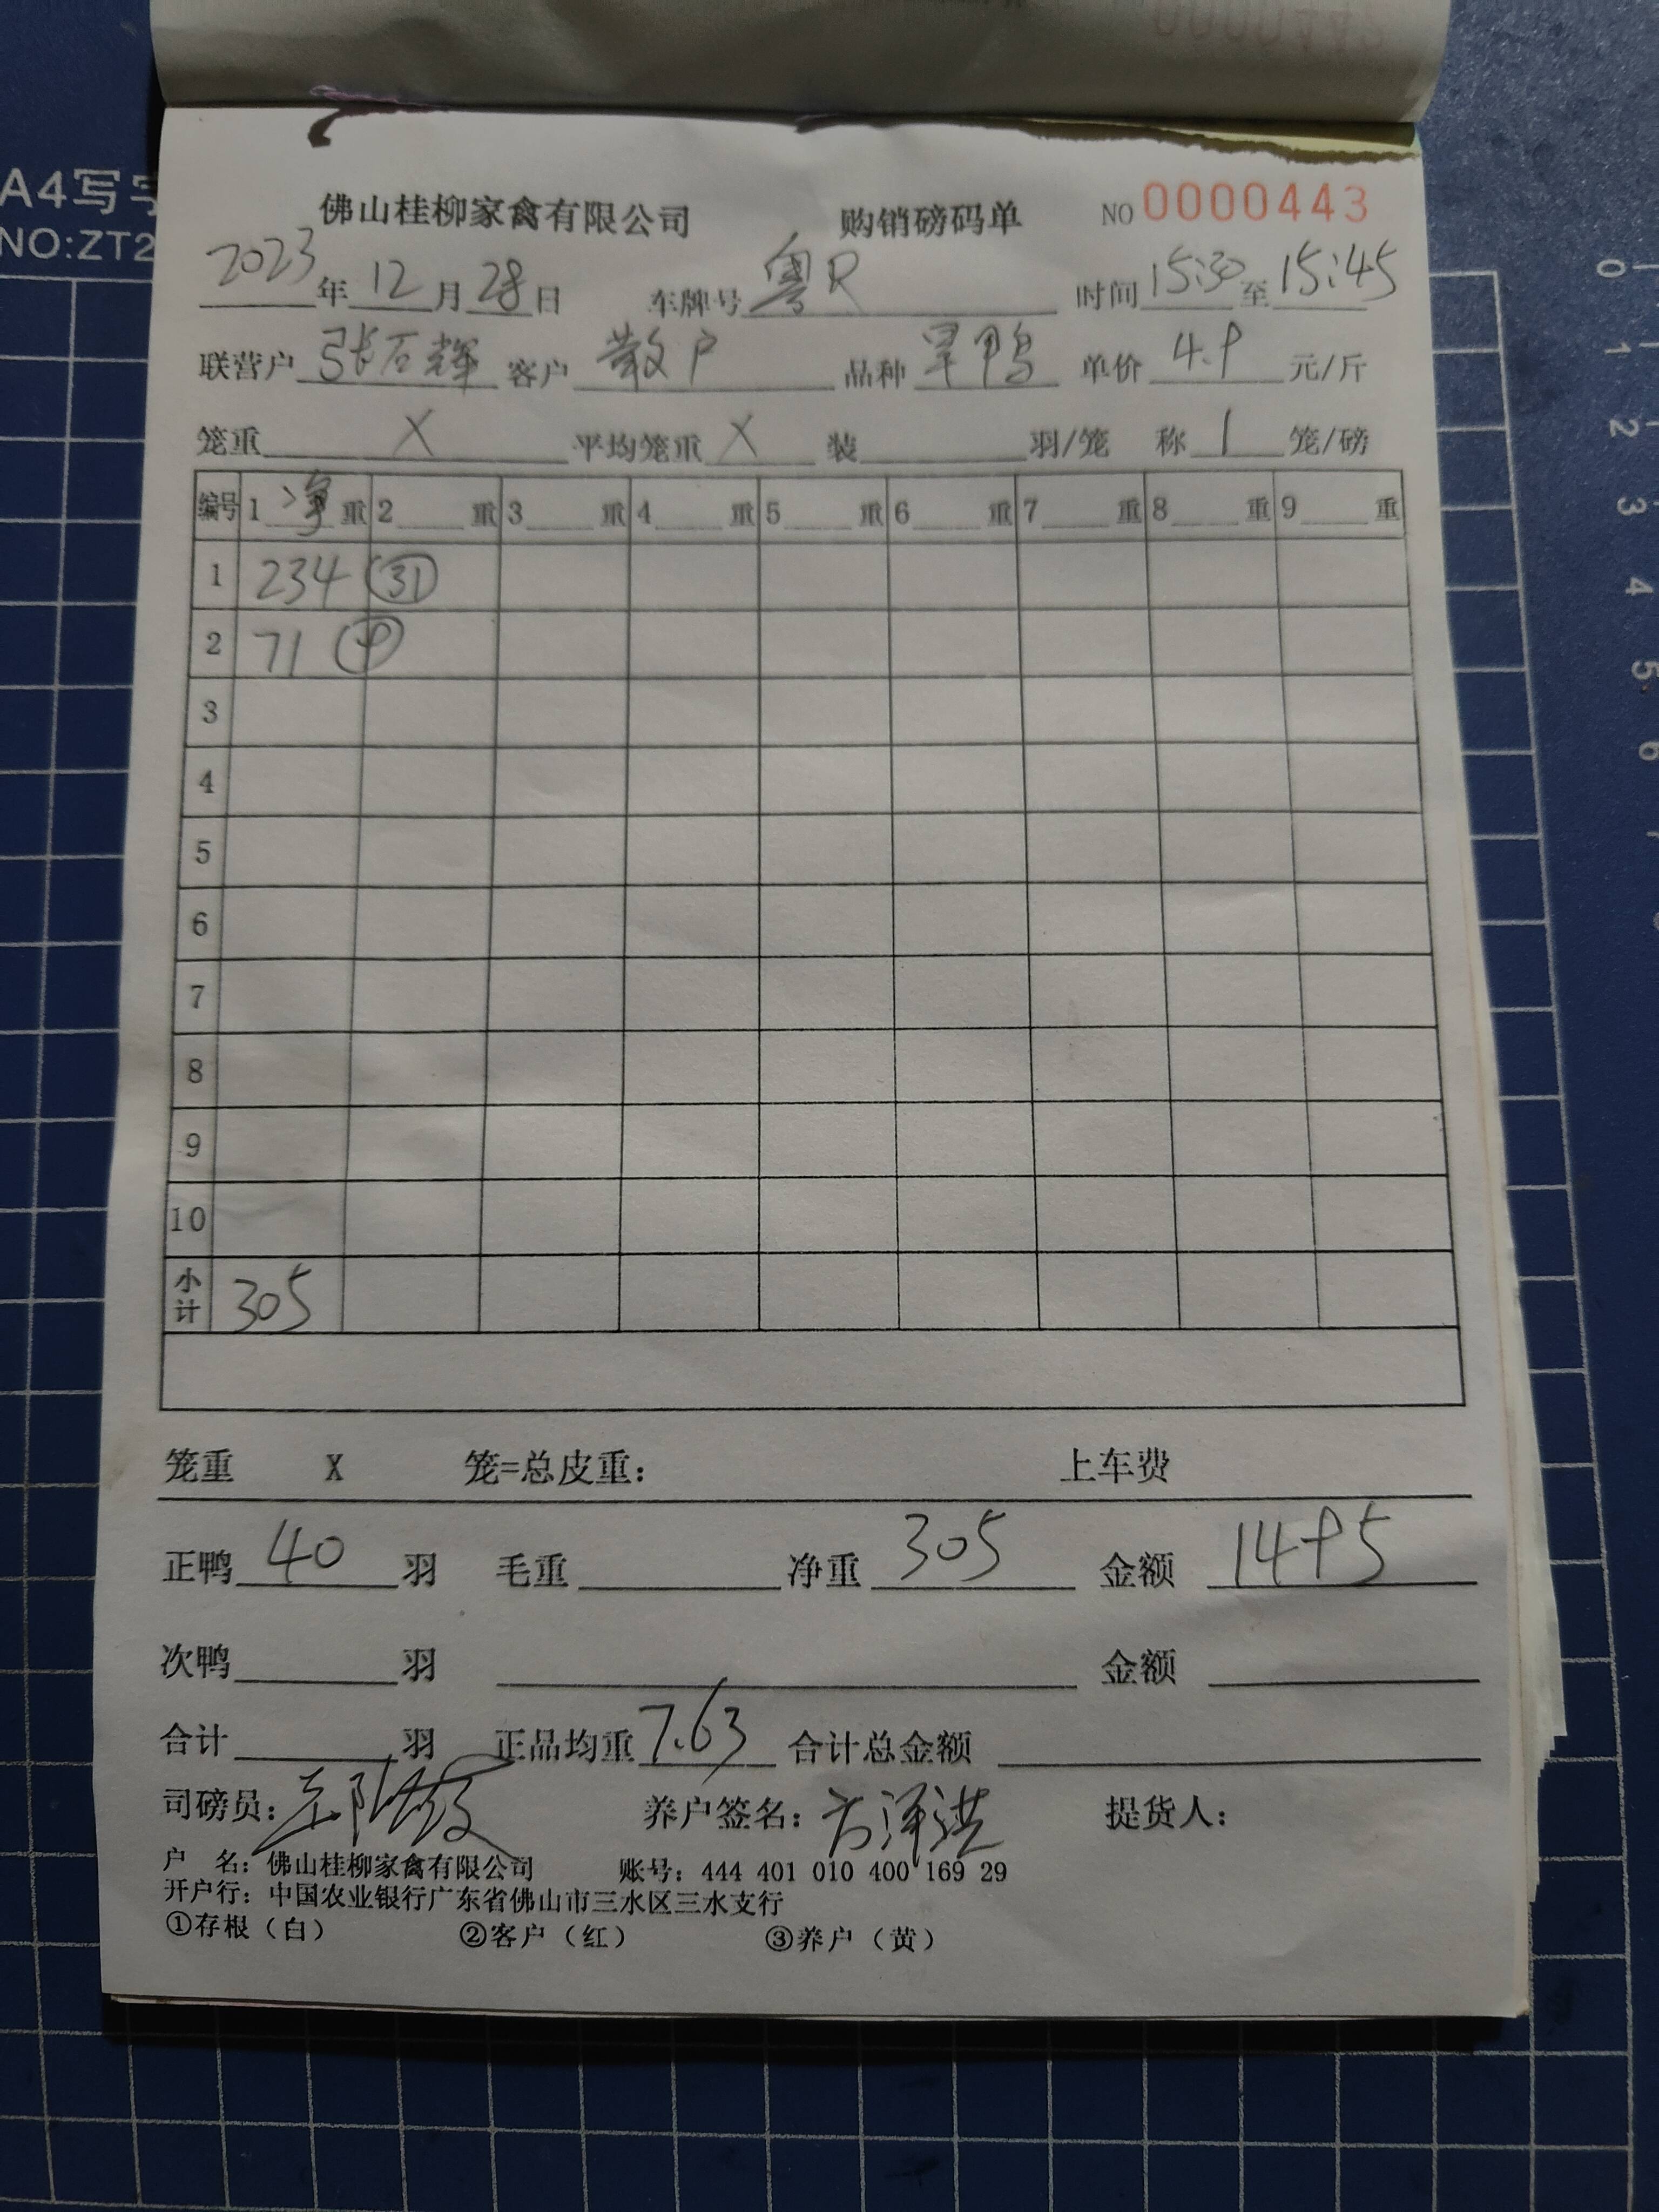 A4写字
NO:ZT2
佛山桂柳家禽有限公司 购销磅码单 NO 0000443
2023年12月28日 车牌号 粤R 时间 15:30 至 15:45
联营户 张石辉 客户 散户 品种 旱鸭 单价 4.9 元/斤
笼重 X 平均笼重 X 装 羽/笼 称 1 笼/磅
编号 1 净 重 2 重 3 重 4 重 5 重 6 重 7 重 8 重 9 重
1 234 (31)
2 71 (9)
3
4
5
6
7
8
9
10
小计 305
笼重 X 笼=总皮重: 上车费
正鸭 40 羽 毛重 净重 305 金额 1495
次鸭 羽 金额
合计 羽 正品均重 7.63 合计总金额
司磅员: 养户签名: 提货人:
户 名: 佛山桂柳家禽有限公司 账号: 444 401 010 400 169 29
开户行: 中国农业银行广东省佛山市三水区三水支行
①存根（白） ②客户（红） ③养户（黄）
0
1
2
3
4
5
6
7